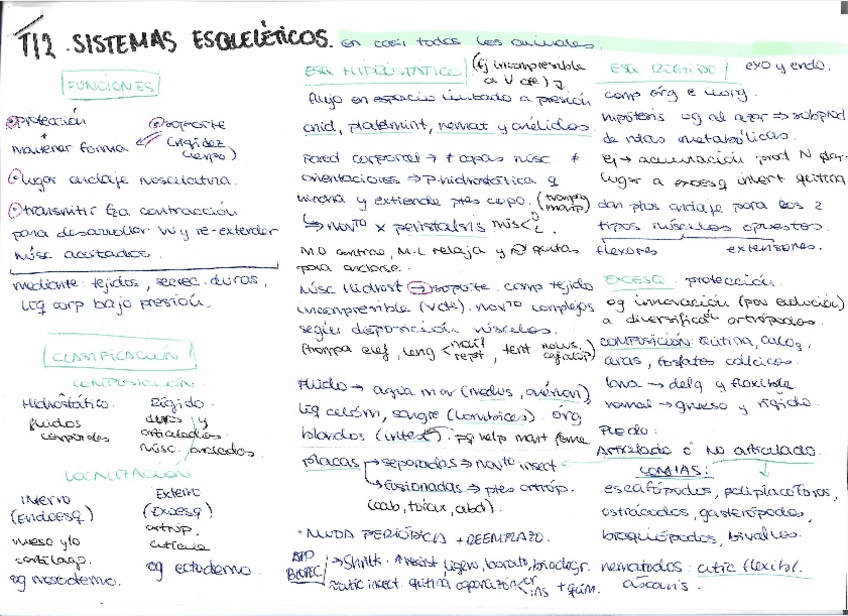 T12. SISTEMAS ESQUELÉTICOS. en casi todos los animales.
FUNCIONES
protección
+
mantener forma
soporte
(rigidez
cuerpo)
lugar anclaje musculatura.
transmitir fza contracción
para desarrollar W y re-extender
músc acortados.
mediante: tejidos, secrec. duras,
líq corp bajo presión.
CLASIFICACIÓN
COMPOSICIÓN
Hidrostático.
fluidos
corporales
Rígido.
duros y
articulados
músc. anclados.
LOCALIZACIÓN
Interno
(Endoesq)
hueso y/o
cartílago.
og mesodermo.
Externo
(Exoesq)
artróp.
cutícula
og ectodermo.
ESQ HIDROSTÁTICO (fq incompresible
a V cte)
flujo en espacio limitado a presión
cnid, platelmint, nemat y anélidos.
Pared corporal → + capas músc. +
orientaciones → P. hidrostática q
inicia y extiende ptes cuerpo. (trompa
marip)
↳ movto x peristalsis músc
M.C contrae, M.L relaja y quetas
para anclarse.
Músc Hidrost → soporte. comp tejido
incompresible (Vcte). movto complejos
según disposición músculos.
trompa elef, leng < mamif rept, tent moluscos. cefalóp)
Fluido → agua mar (medus, anémon)
líq celóm, sangre (lombrices). órg
blandos (intest). pq help mant forma
placas → separadas → movto insect
↳ fusionadas → ptes artróp.
(cab, tórax, abd).
· MUDA PERIÓDICA + REEMPLAZO.
APP
BIOTEC
→ Shrilk. ↑resist ligero, barato, biodegr.
cutic insect. quitina caparazón + quím.
ESQ RÍGIDO exo y endo.
comp org e inorg.
hipótesis og al azar → subprod
de rutas metabólicas.
Ej → acumulación prod N dan
lugar a exoesq invert quitina
dan ptos anclaje para los 2
tipos músculos opuestos.
flexores extensores.
EXOESQ protección.
og innovación (pov evolución)
a diversificón artrópodos.
COMPOSICIÓN: quitina, CaCO3,
ceras, fosfatos cálcicos.
larva → delg y flexible
normal → grueso y rígido.
Puede:
Articulado ó No articulado.
CONCHAS:
escafópodos, poliplacóforos,
ostrácodos, gasterópodos,
braquiópodos, bivalvos.
nematodos: cutic flexibl.
áscaris.